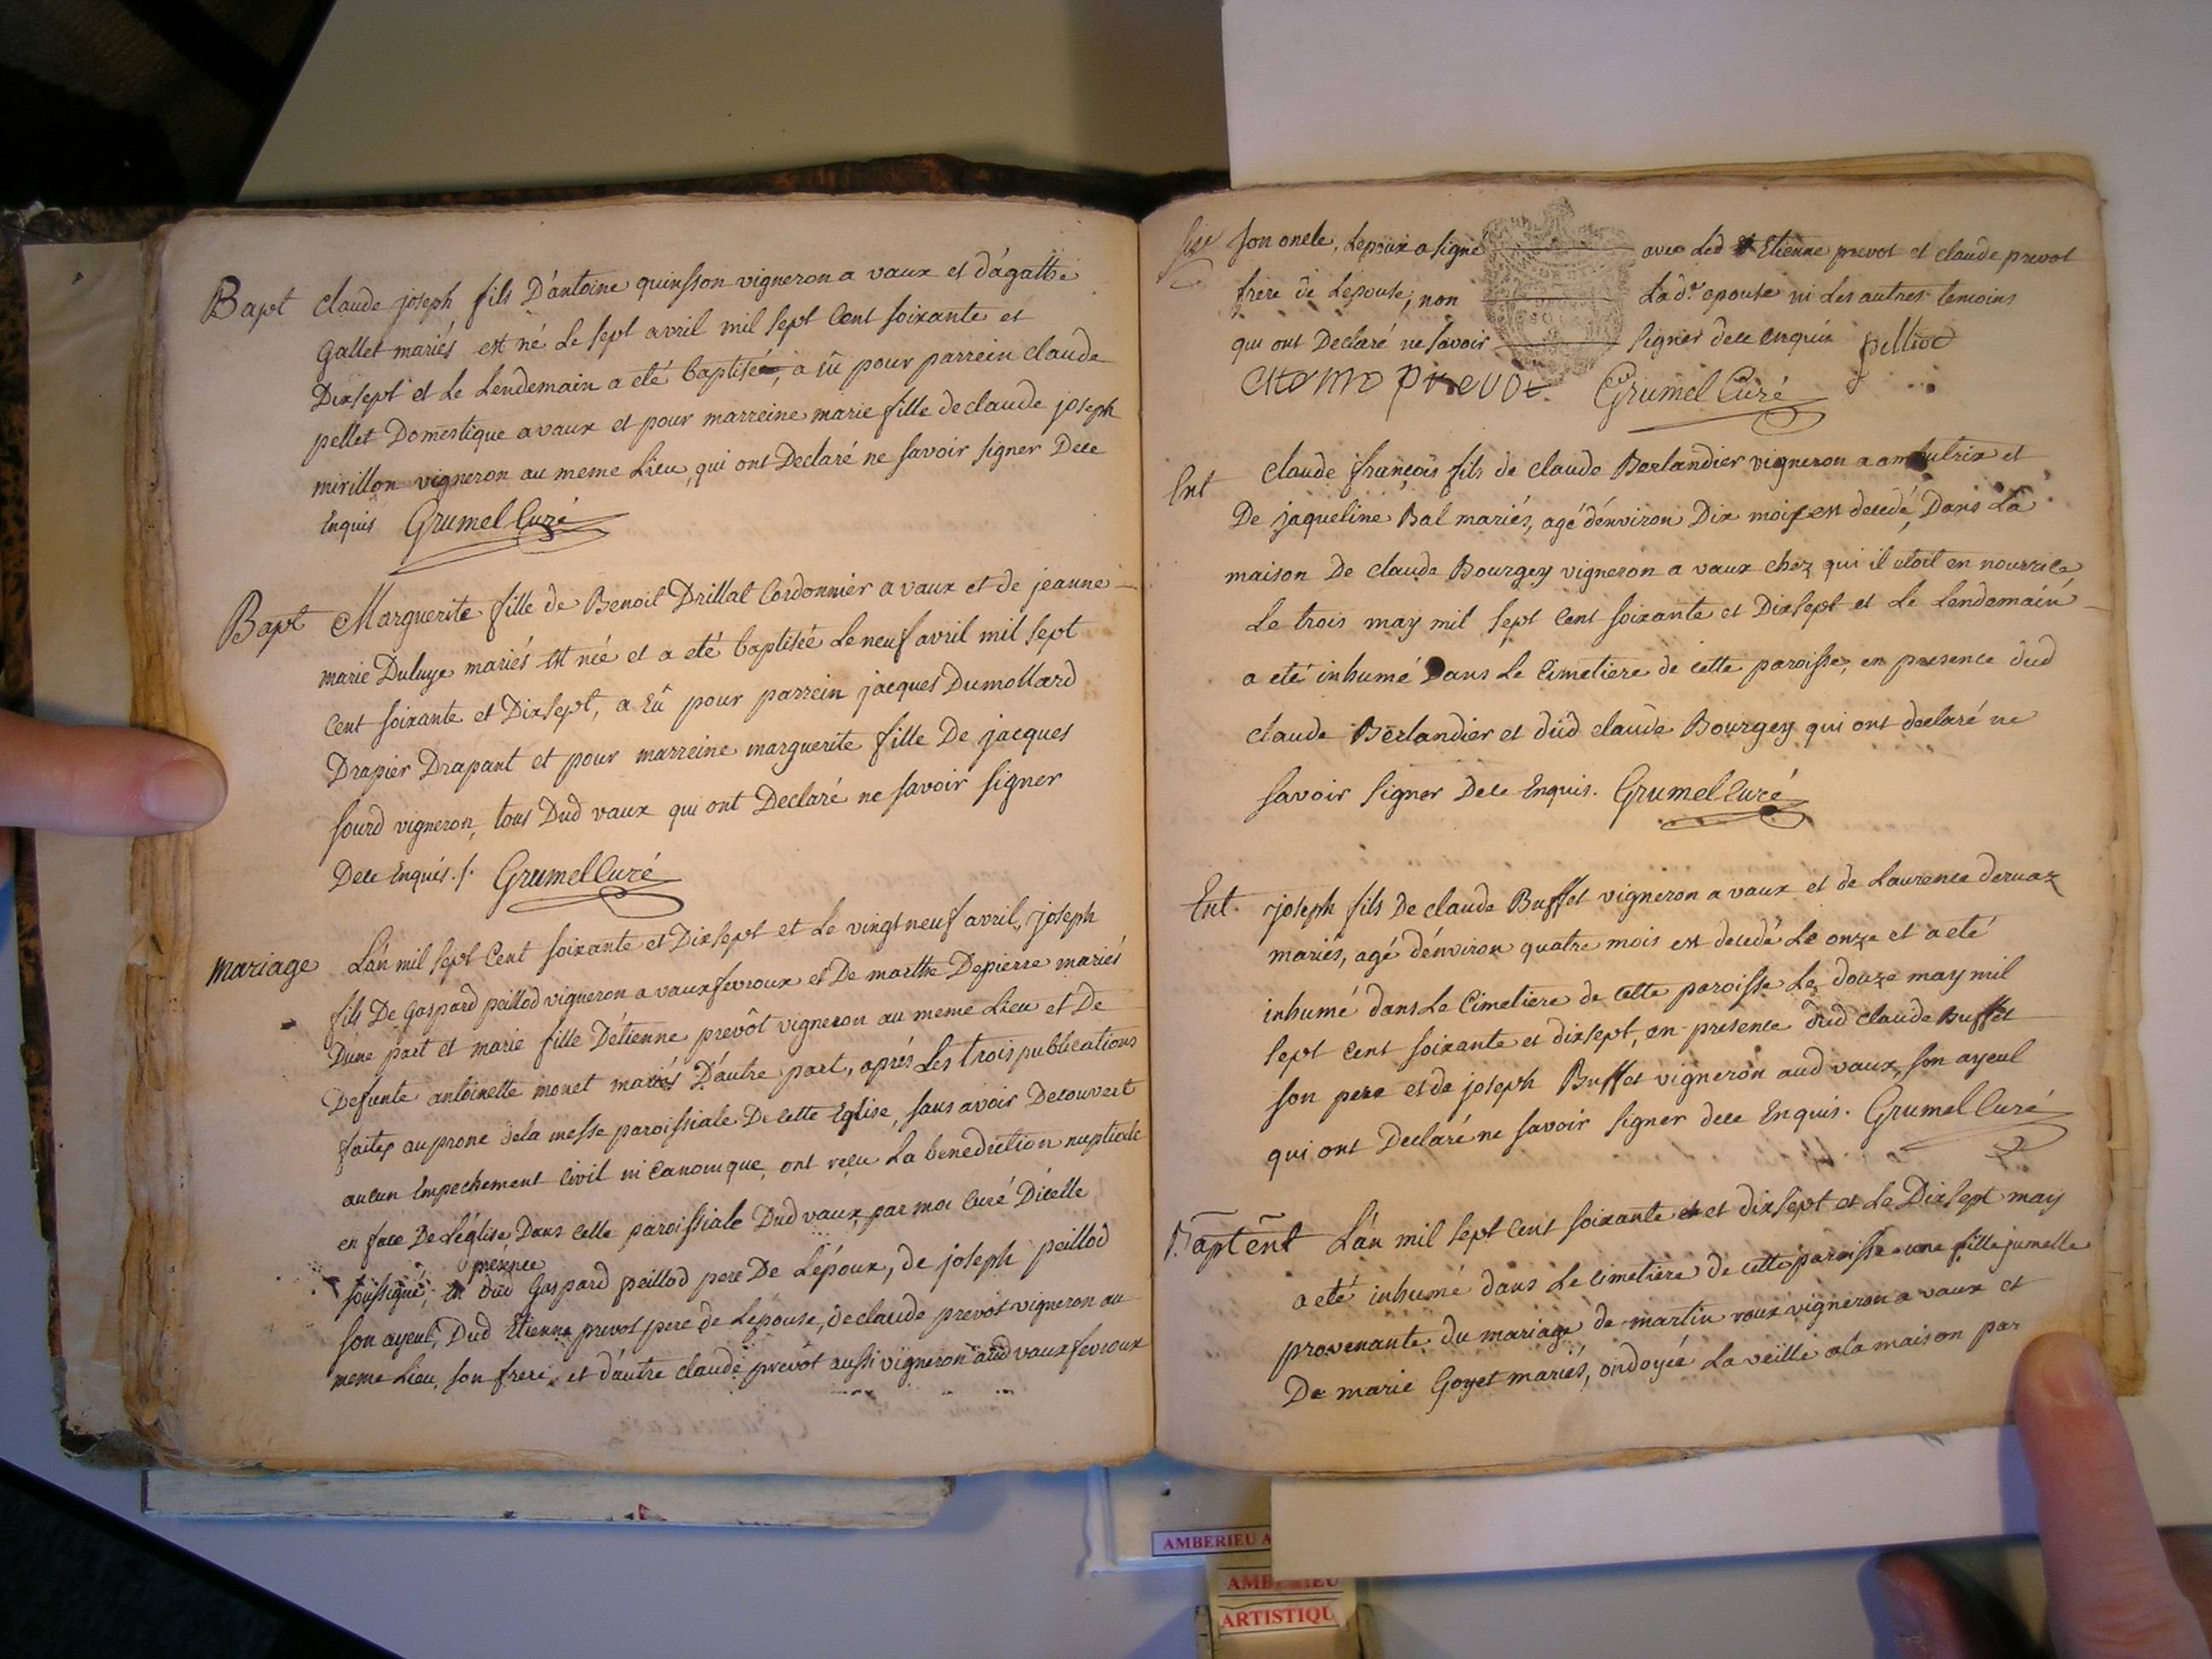 Bapt claude joseph fils D'antoine quinsson vigneron a vaux et d'agathe
Gallet mariés est né Le sept avril mil sept Cent soixante et
Dixsept et Le Lendemain a eté baptisé, a û pour parrein claude
pellet Domestique a vaux et pour marreine marie fille de claude joseph
mirillon vigneron au meme Lieu, qui ont Declaré ne savoir signer Dece
Enquis Grumel Curé
Bapt Marguerite fille de Benoit Drillat Cordonnier a vaux et de jeanne
marie Duluye mariés est née et a eté baptisée Le neuf avril mil sept
Cent soixante et Dixsept, a Eû pour parrein jacques Dumollard
Drapier Drapant et pour marreine marguerite fille De jacques
sourd vigneron, tous Dud vaux qui ont Declaré ne savoir signer
Dece Enquis./. Grumel Curé
mariage L'an mil sept Cent soixante et Dixsept et Le vingt neuf avril, joseph
fils De Gaspard peillod vigneron a vauxfevroux et De marthe Depierre mariés
D'une part et marie fille D'etienne prevôt vigneron au meme Lieu et De
Defunte antoinette monet mariés D'autre part, aprés Les trois publications
faites au prone dela messe paroissiale De cette Eglise, sans avoir Decouvert
aucun Empechement Civil ni Canonique, ont reçu La benediction nuptiale
en face De L'église Dans celle paroissiale Dud vaux, par moi Curé D'icelle
présence
soussigné, En dud Gaspard peillod pere De L'époux, de joseph peillod
son ayeul, Dud Etienne prevot pere de Lepouse, de claude prevot vigneron au
meme Lieu, son frere, et d'autre claude prevôt aussi vigneron aud vauxfevroux
son oncle, Lepoux a signé avec Led Etienne prevot et claude prevot
frere de Lepouse, non Lad.e epouse ni Les autres temoins
qui ont Declaré ne savoir signer dece enquis pelliod
prevot Grumel Curé
Ent claude françois fils de claude Berlandier vigneron a ambutrix et
De jaqueline Bal mariés, agé d'environ Dix mois est decedé, Dans La
maison De claude Bourgey vigneron a vaux chez qui il etoit en nourrice
Le trois may mil sept Cent soixante et Dixsept et Le Lendemain
a eté inhumé Dans Le Cimetiere de cette paroisse, en presence dud
claude Berlandier et dud claude Bourgey qui ont declaré ne
savoir signer Dece Enquis. Grumel Curé
Ent. joseph fils De claude Buffet vigneron a vaux et de Laurence dervaz
mariés, agé d'environ quatre mois est decedé Le onze et a eté
inhumé dans Le Cimetiere de cette paroisse Le douze may mil
sept Cent soixante et dixsept, en presence dud claude Buffet
son pere et de joseph Buffet vigneron aud vaux, son ayeul
qui ont Declaré ne savoir signer dece Enquis. Grumel Curé
Bapt ent L'an mil sept Cent soixante et et dixsept et Le Dixsept may
a eté inhumé dans Le cimetiere de cette paroisse une fille jumelle
provenante du mariage de martin roux vigneron a vaux et
De marie Goyet mariés, ondoyée La veille a la maison par
AMBERIEU A
AMBERIEU
ARTISTIQU